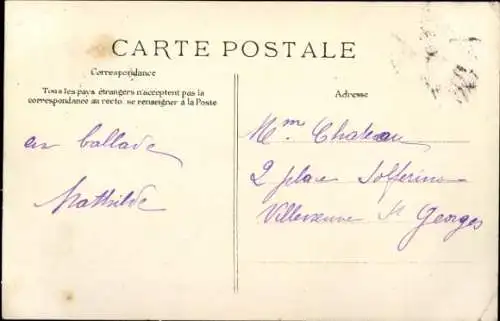 CARTE POSTALE
Correspondance
Tous les pays étrangers n'acceptent pas la
correspondance au recto, se renseigner à la Poste
Adresse
en ballade
Mathilde
Mme Chateau
2 place Solferino
Villeneuve St Georges